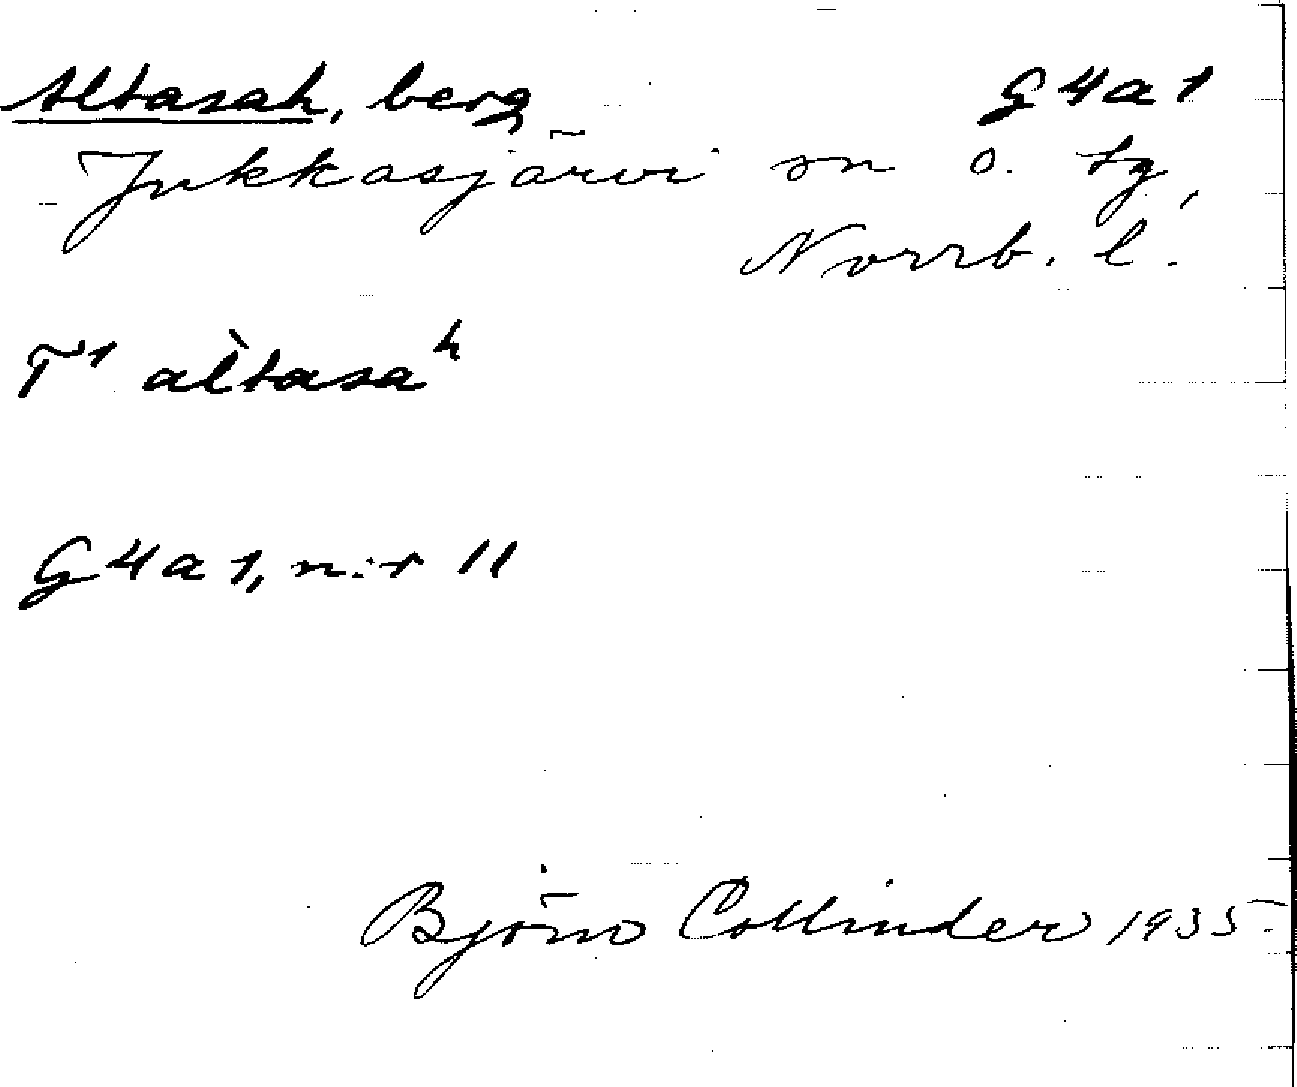 Altasah, berg G4a1
Jukkasjärvi sn o. tg,
Norrb. l.
T¹ al̀tasaʰ
G4a1, n:r 11
Björn Collinder 1935.